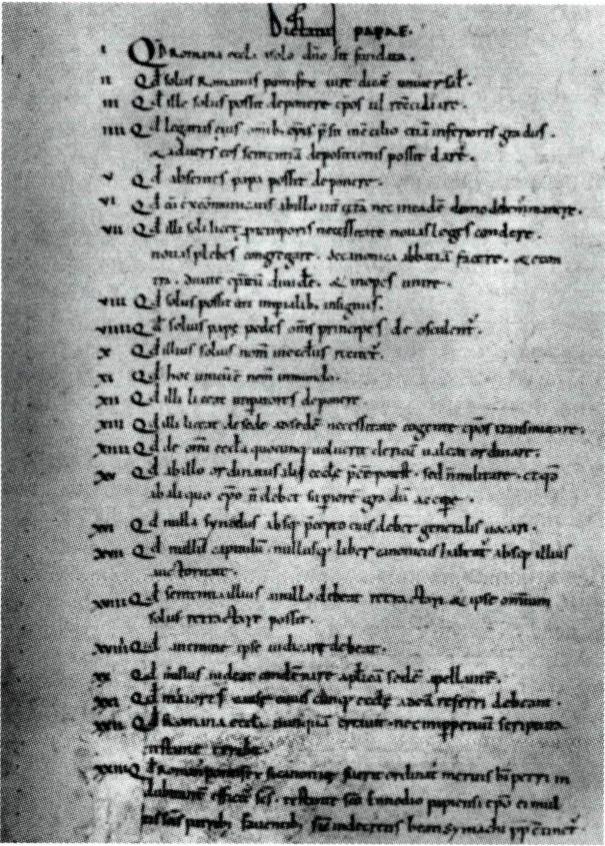 Dictatus PAPAE.
I Qd Romana eccla solo dño sit fundata.
II Qd solus Romanus pontifex iure dicat' universal'.
III Qd ille solus possit deponere epos ul reciliare.
IIII Qd legatus eius omib; epis psit in cilio etiā inferioris gradus.
& advers' eos sententiā depositionis possit dare.
V Qd absentes papa possit deponere.
VI Qd cū excōmunicatis ab illo int' cetra nec in eadē domo debem' manere.
VII Qd illi soli licet p temporis necessitate novas leges condere.
novas plebes congregare. de canonica abbatiā facere. & e cont
ra. divite epatū divide'. & inopes unire.
VIII Qd solus possit uti imperialib; insigniis.
VIIII Qd solius pape pedes om's principes de osculent'.
X Qd illius solius nom' in eccliis recitet'.
XI Qd hoc unicū ē nom' in mundo.
XII Qd illi liceat imperatores deponere.
XIII Qd illi liceat de sede ad sedē necessitate cogente epos transmutare.
XIIII Qd de omi eccla quocunq; voluerit clericū valeat ordinare.
XV Qd ab illo ordinatus alii eccle pee potest. sed n militare. et qd
ab aliquo epo n debet supiore gradū accipe.
XVI Qd nulla synodus absq; pcepto eius debet generalis vocari.
XVII Qd nullū capitulū nullusq; liber canonicus habeat' absq; illius
auctoritate.
XVIII Qd sententia illius a nullo debeat retractari & ipse omium
solus retractare possit.
XVIIII Qd a nemine ipse iudicare debeat.
XX Qd nullus audeat condēnare aplicā sedē apellante.
XXI Qd maiores cause cuiuscunq; eccle ad eā referri debeant.
XXII Qd Romana eccla nunquā erravit nec imppetuū scriptura
testante errabit.
XXIII Qd Roman' pontifex si canonice fuerit ordinat' meritis bi petri in
dubitant' efficit' scs. testante sco Ennodio papiensi epo ei mul
tis scis patrib; faventib; sic in decretis beati symachi pp continet'.